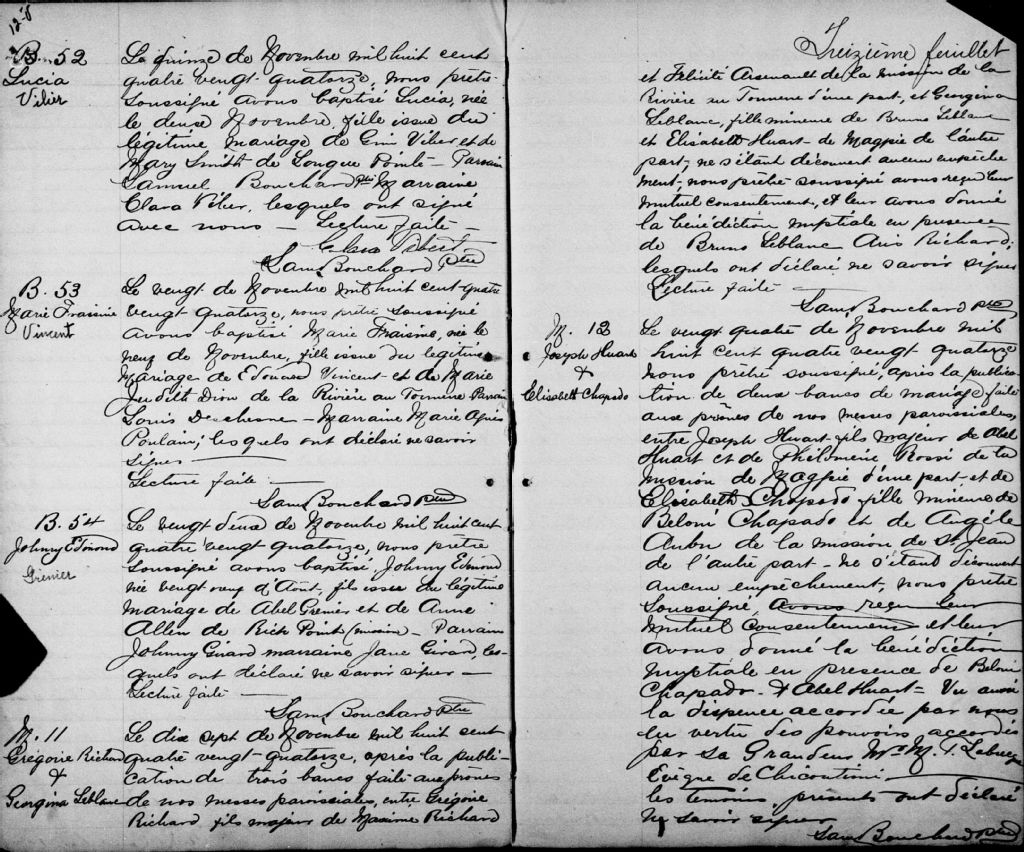 B. 52
Lucia
Vilier
Le quinze de Novembre mil huit cent
quatre vengt quatorze, nous prêtre
soussigné avons baptisé Lucia, née
le deuse Novembre, fille issue du
légitime mariage de Vilier et de
Mary Smith de Longue Pointe - Parrain
Samuel Bouchard ptre Marraine
Clara Vilier, lesquels ont signé
avec nous - Lecture faite -
Clara Vibert
Sam Bouchard Ptre
B. 53
Marie Fraisine
Vincent
Le vengt de Novembre mil huit cent quatre
vengt quatorze, nous prêtre soussigné
avons baptisé Marie Fraisine, née le
neuf de Novembre, fille issue du légitime
mariage de Edouard Vincent et de Marie
Judith Dion de la Rivière au Tonnerre Parrain
Louis Deschesne - Marraine Marie Agnès
Poulain, lesquels ont déclaré ne savoir
signer
Lecture faite
Sam Bouchard ptre
B. 54
Johnny Edmond
Grenier
Le vengt deux de Novembre mil huit cent
quatre vengt quatorze, nous prêtre
soussigné avons baptisé, Johnny Edmond
né vengt neuf d'Aout, fils issu du légitime
mariage de Abel Grenier et de Anne
Allen de Rich Point (mission - Parrain
Johnny Girard marraine Jane Girard, les-
quels ont déclaré ne savoir signer -
Lecture faite
Sam Bouchard Ptre
M. 11
Grégoire Richard
&
Georgina Leblanc
Le dix sept de Novembre mil huit cent
quatre vengt quatorze, après la publi-
cation de trois bancs faite aux prones
de nos messes paroissiales, entre Grégoire
Richard fils majeur de Maxime Richard
Treizième feuillet
et Félicité Arsenault de la mission de la
Rivière au Tonnerre d'une part, et Georgina
Leblanc, fille mineure de Bruno Leblanc
et Elisabeth Huart de Magpie de l'autre
part, ne s'étant découvert aucun empêche
ment, nous prêtre soussigné avons reçu leur
mutuel consentement, et leur avons donné
la bénédiction nuptiale en presence
de Bruno Leblanc Richard,
lesquels ont déclaré ne savoir signer
Lecture faite
Sam Bouchard ptre
M. 12
Joseph Huart
&
Elisabeth Chapado
Le vengt quatre de Novembre mil
huit cent quatre vengt quatorze
nous prêtre soussigné, après la publica
tion de deux bancs de mariage faite
aux prônes de nos messes paroissiales,
entre Joseph Huart fils majeur de Abel
Huart et de Philomène Rossé de la
mission de Magpie d'une part, et de
Elisabeth Chapado fille mineure de
Beloni Chapado et de Angèle
Aubu de la mission de St Jean
de l'autre part - ne s'étand découvert
aucun empêchement, nous prêtre
soussigné, avons reçu leur
mutuel consentement et leur
avons donné la bénédiction
nuptiale en presence de Beloni
Chapado & Abel Huart - Vu aussi
la dispence accordée par nous
en vertu des pouvoirs accordés
par sa Grandeur Mgr M. T. Labrecque
Evêque de Chicoutimi
les temoins, presents ont déclaré
ne savoir signer
Sam Bouchard Ptre